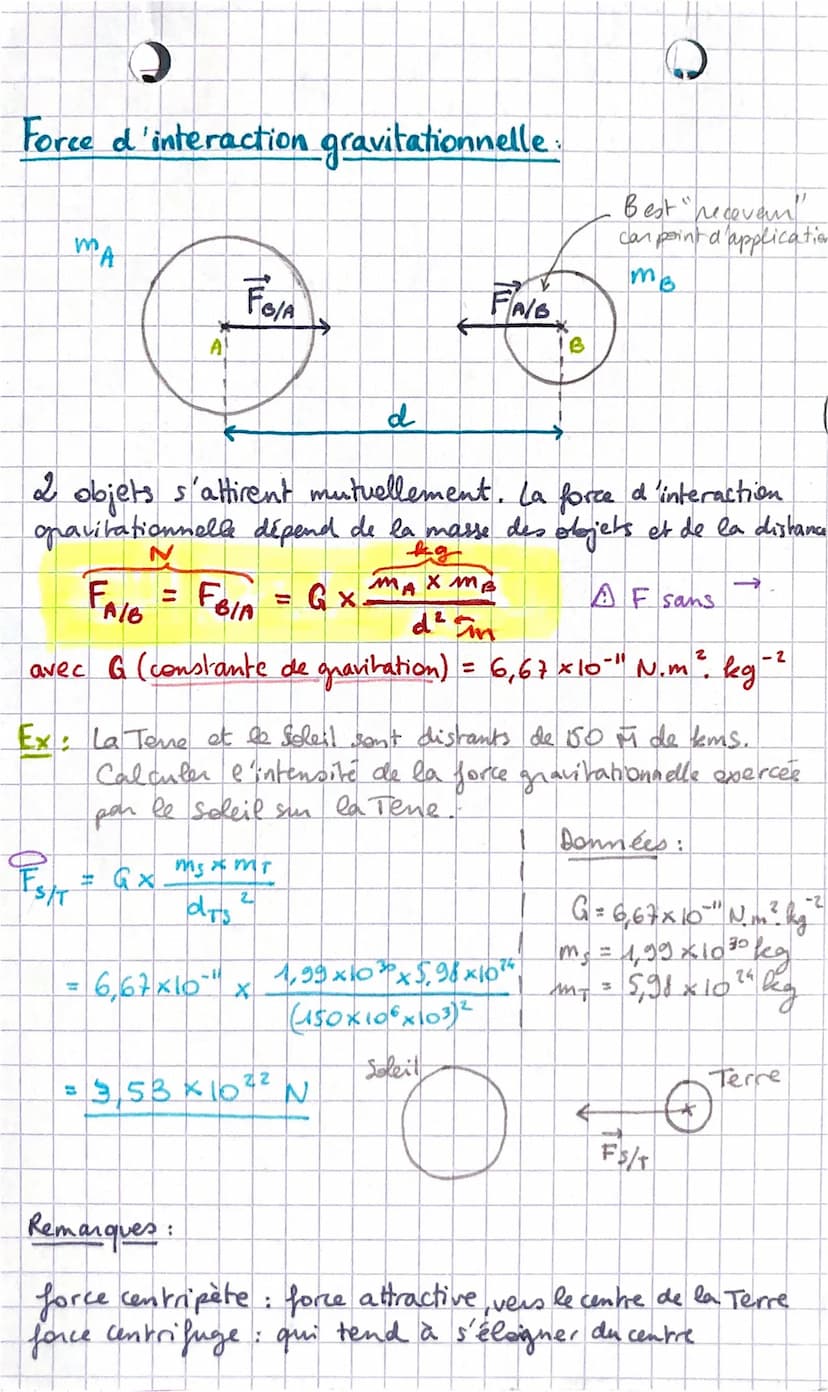 Force d'interaction gravitationnelle :
B est "receveur"
car point d'application
mA
mB
F⃗B/A
F⃗A/B
A
B
d
2 objets s'attirent mutuellement. La force d'interaction
gravitationnelle dépend de la masse des objets et de la distance
N
kg
FA/B = FB/A = G × mA × mB / d²
m
⚠ F sans →.
avec G (constante de gravitation) = 6,67 × 10⁻¹¹ N.m². kg⁻²
Ex : La Terre et le Soleil sont distants de 150 M de kms.
Calculer l'intensité de la force gravitationnelle exercée
par le soleil sur la Terre.
Données :
FS/T = G × mS × mT / dTS²
G = 6,67 × 10⁻¹¹ N.m².kg⁻²
mS = 1,99 × 10³⁰ kg
mT = 5,98 × 10²⁴ kg
= 6,67 × 10⁻¹¹ × 1,99 × 10³⁰ × 5,98 × 10²⁴ / (150 × 10⁶ × 10³)²
= 3,53 × 10²² N
Soleil
Terre
F⃗S/T
Remarques :
force centripète : force attractive, vers le centre de la Terre
force centrifuge : qui tend à s'éloigner du centre